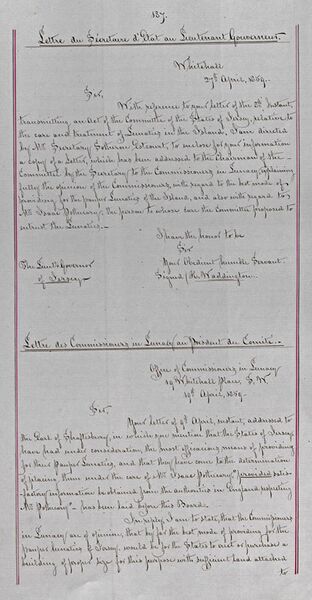 187.
Lettre du Secrétaire d'Etat au Lieutenant Gouverneur.
Whitehall
27th April, 1859.
Sir,
With reference to your letter of the 2nd Instant
transmitting an Act of the Committee of the States of Jersey, relative to
the care and treatment of Lunatics in the Island, I am directed
by Mr. Secretary Sotheron Estcourt, to enclose for your information
a copy of a Letter, which has been addressed to the Chairman of the
Committee by the Secretary to the Commissioners in Lunacy, explaining
fully the opinion of the Commissioners, with regard to the best mode of
providing for the pauper Lunatics of the Island, and also with regard to
Mr. Isaac Pothecary, the person to whose care the Committee proposed to
intrust the Lunatics.
I have the honor to be
Sir
Your Obedient humble Servant.
The Lieutt. Governor
Signed / H. Waddington.
of Jersey
Lettre des Commissioners in Lunacy au Président du Comité.
Office of Commissioners in Lunacy
19 Whitehall Place, S. W.
19th April, 1859.
Sir,
Your letter of 9th April, instant, addressed to
the Earl of Shaftesbury, in which you mention that the States of Jersey
have had under consideration, the most efficacious means of providing
for their Pauper Lunatics, and that they have come to the determination
of placing them under the care of Mr. Isaac Pothecary, "provided satis-
factory information be obtained from the authorities in England respecting
Mr. Pothecary" has been laid before this Board.
In reply I am to state, that the Commissioners
in Lunacy are of opinion, that by far the best mode of providing for the
pauper lunatics of Jersey, would be for the States to erect or purchase a
building of proper size for this purpose with sufficient land attached
to